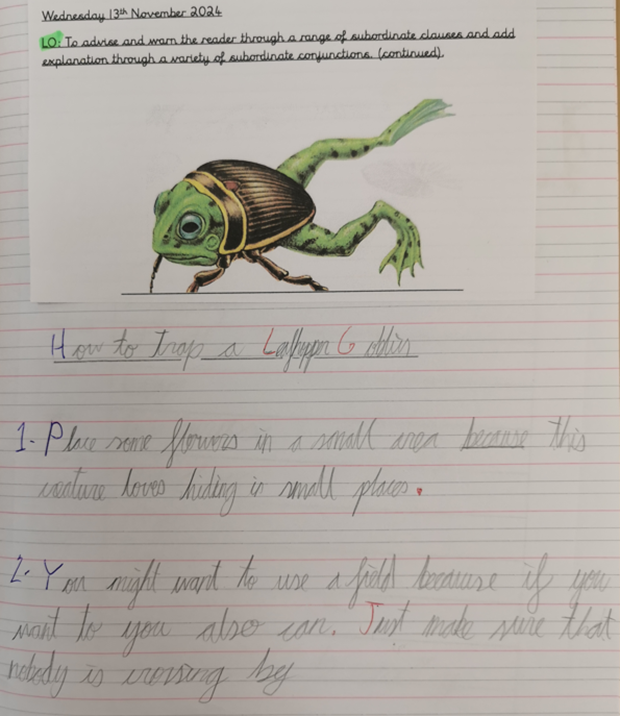 Wednesday 13th November 2024
LO: To advise and warn the reader through a range of subordinate clauses and add
explanation through a variety of subordinate conjunctions. (continued).
How to Trap a Goblin
1- Place some flowers in a small area because this
creature loves hiding in small places.
2- You might want to use a field because if you
want to you also can. Just make sure that
nobody is crorsing by